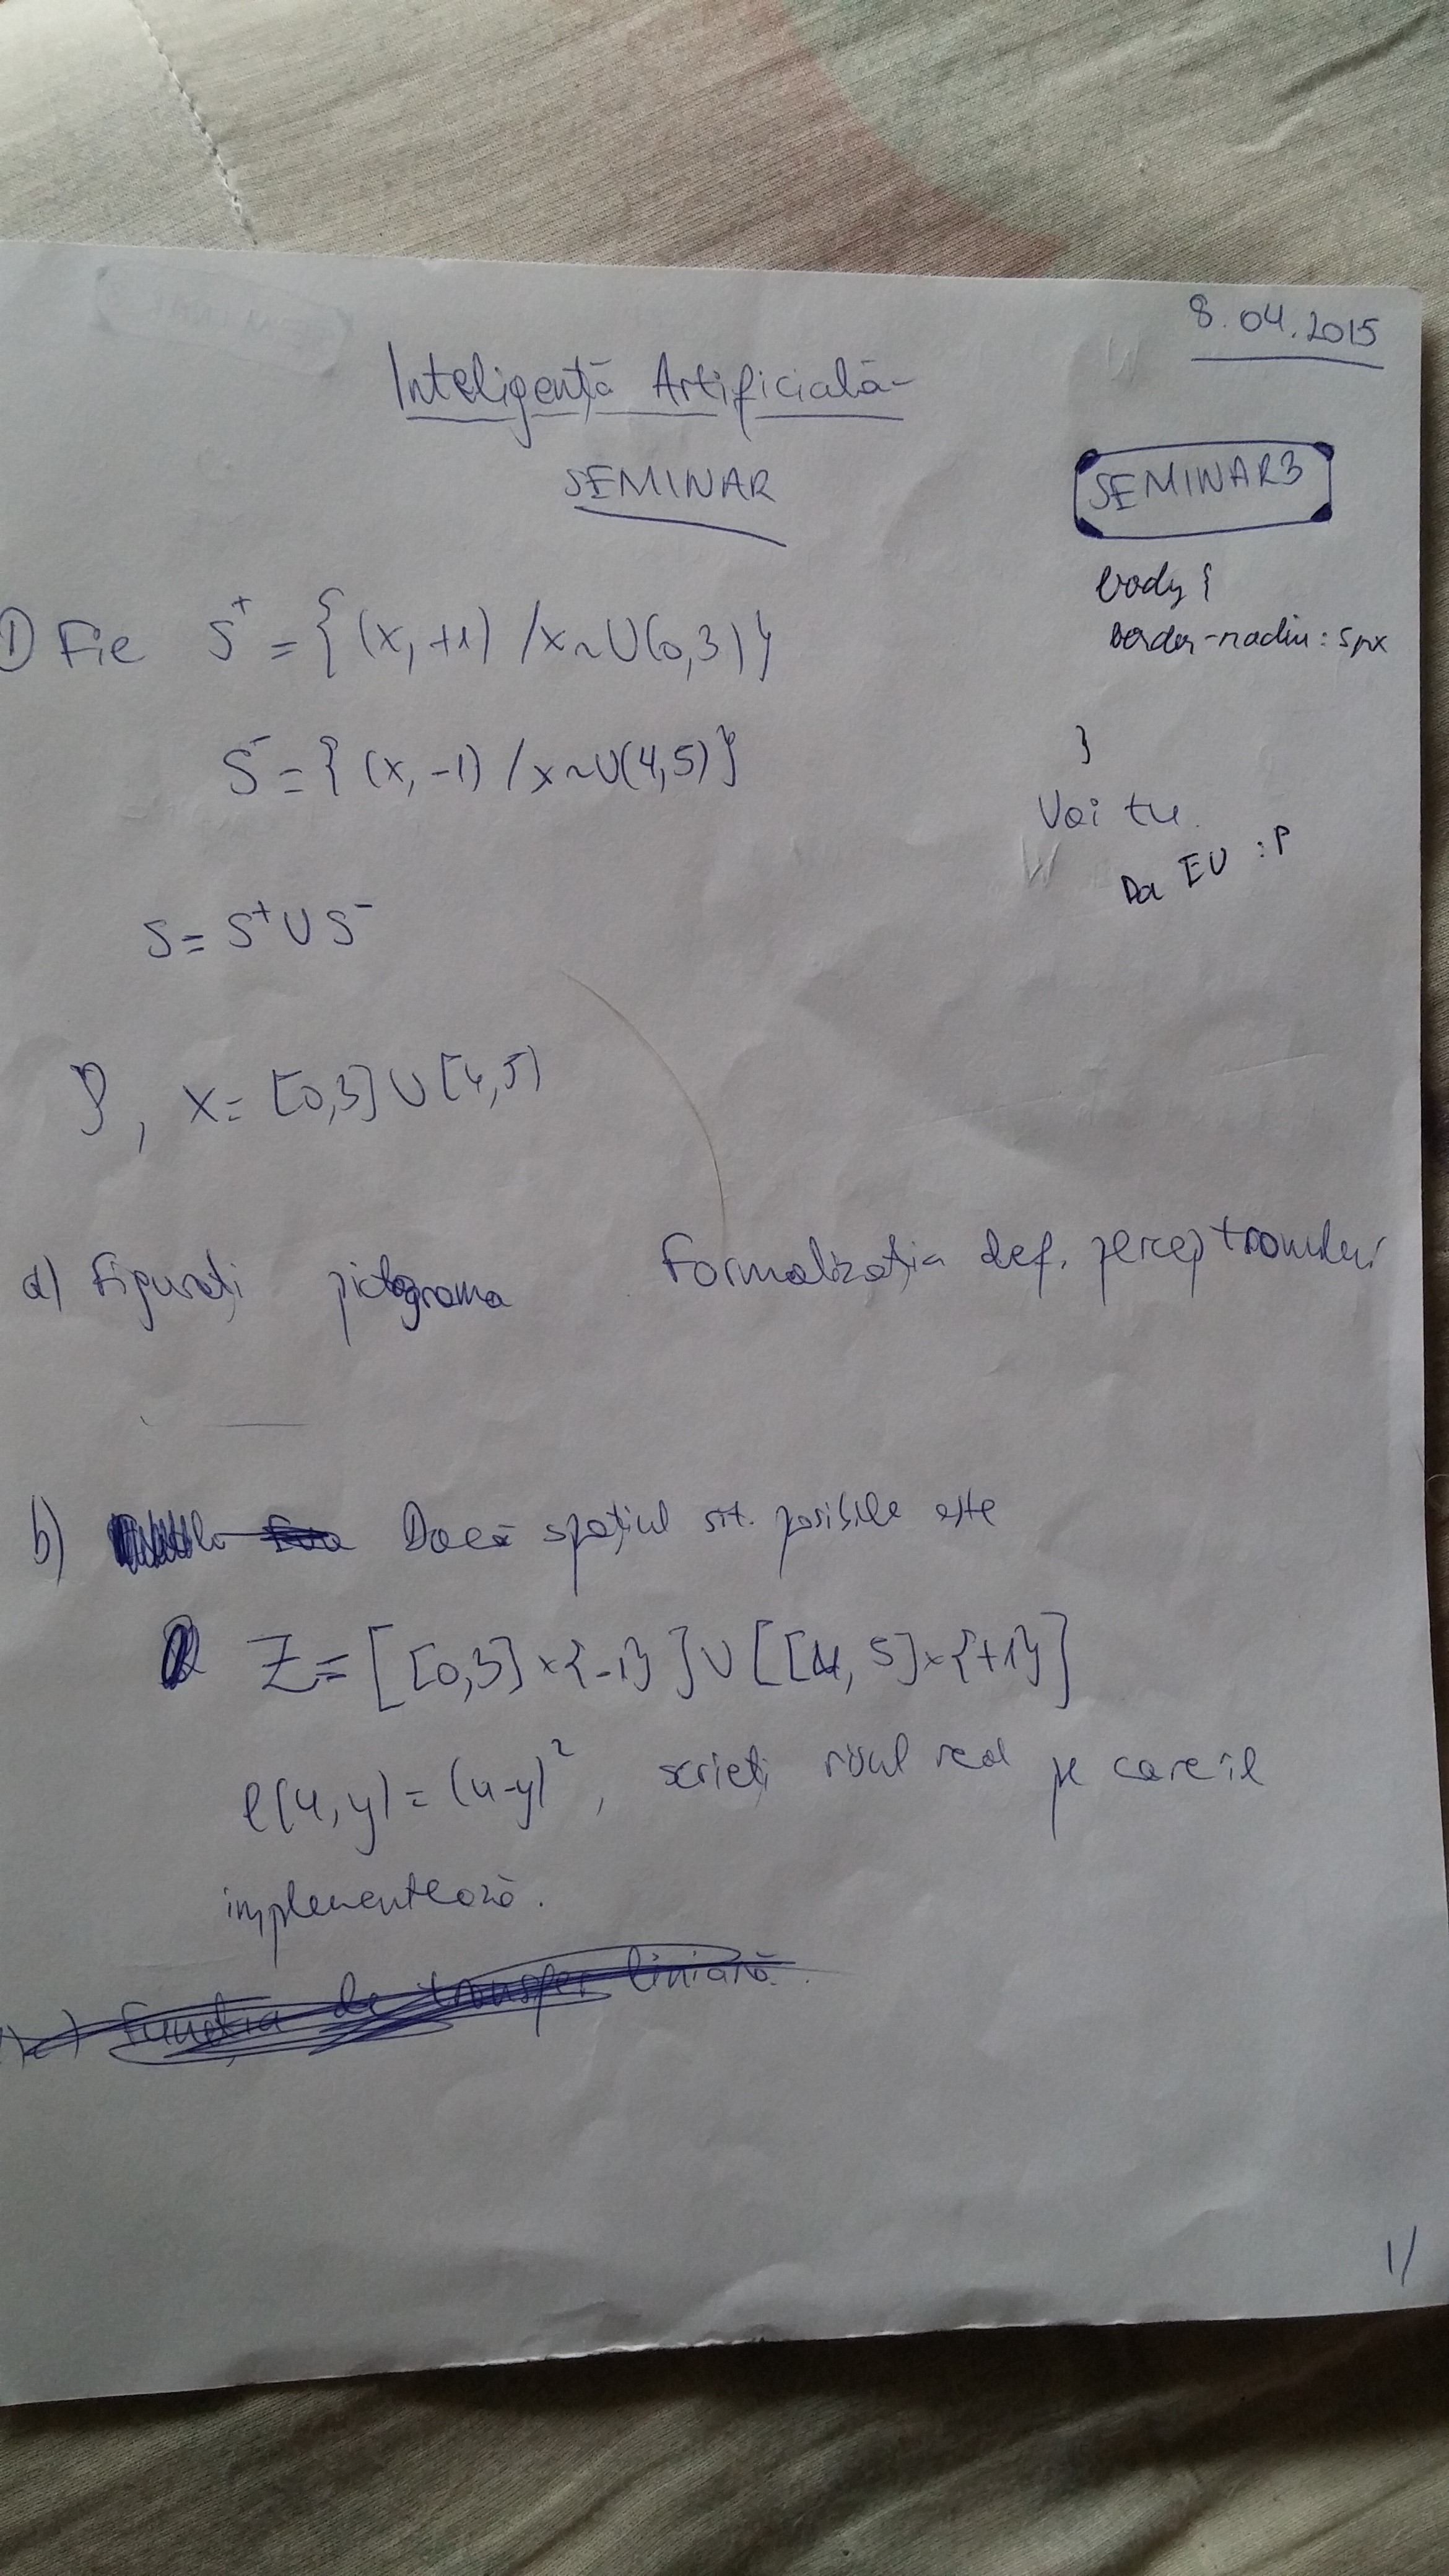 8.04.2015
Inteligență Artificială
SEMINAR
SEMINAR3
body {
border-radiu: 5px
}
Vai tu
Da EU :P
1) Fie S⁺ = {(x, +1) / x~U(0,3)}
S⁻ = {(x, -1) / x~U(4,5)}
S = S⁺ U S⁻
, X = [0,3] U [4,5)
a) Figurați pictograma Formalizația def. perceptronului
b) Dacă spațiul sit. posibile este
Z = [[0,3] x {-1}] U [[4, 5] x {+1}]
l(u,y) = (u-y)², scrieți riscul real pe care îl
implementează.
Funcția de transfer liniară.
1/